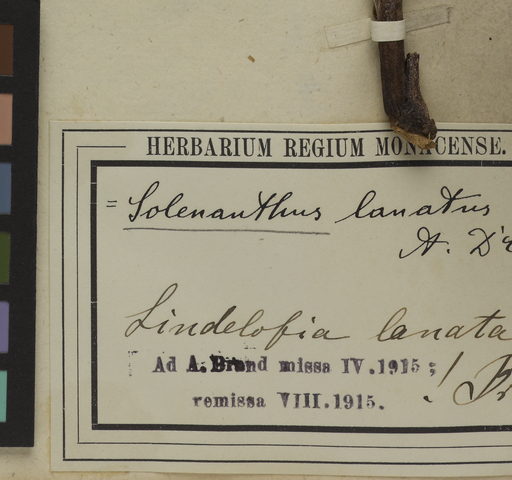 HERBARIUM REGIUM MONACENSE.
= Solenanthus lanatus
A. D
Lindelofia lanata
Ad A. Brand missa IV.1915 ;
remissa VIII.1915. ! Br